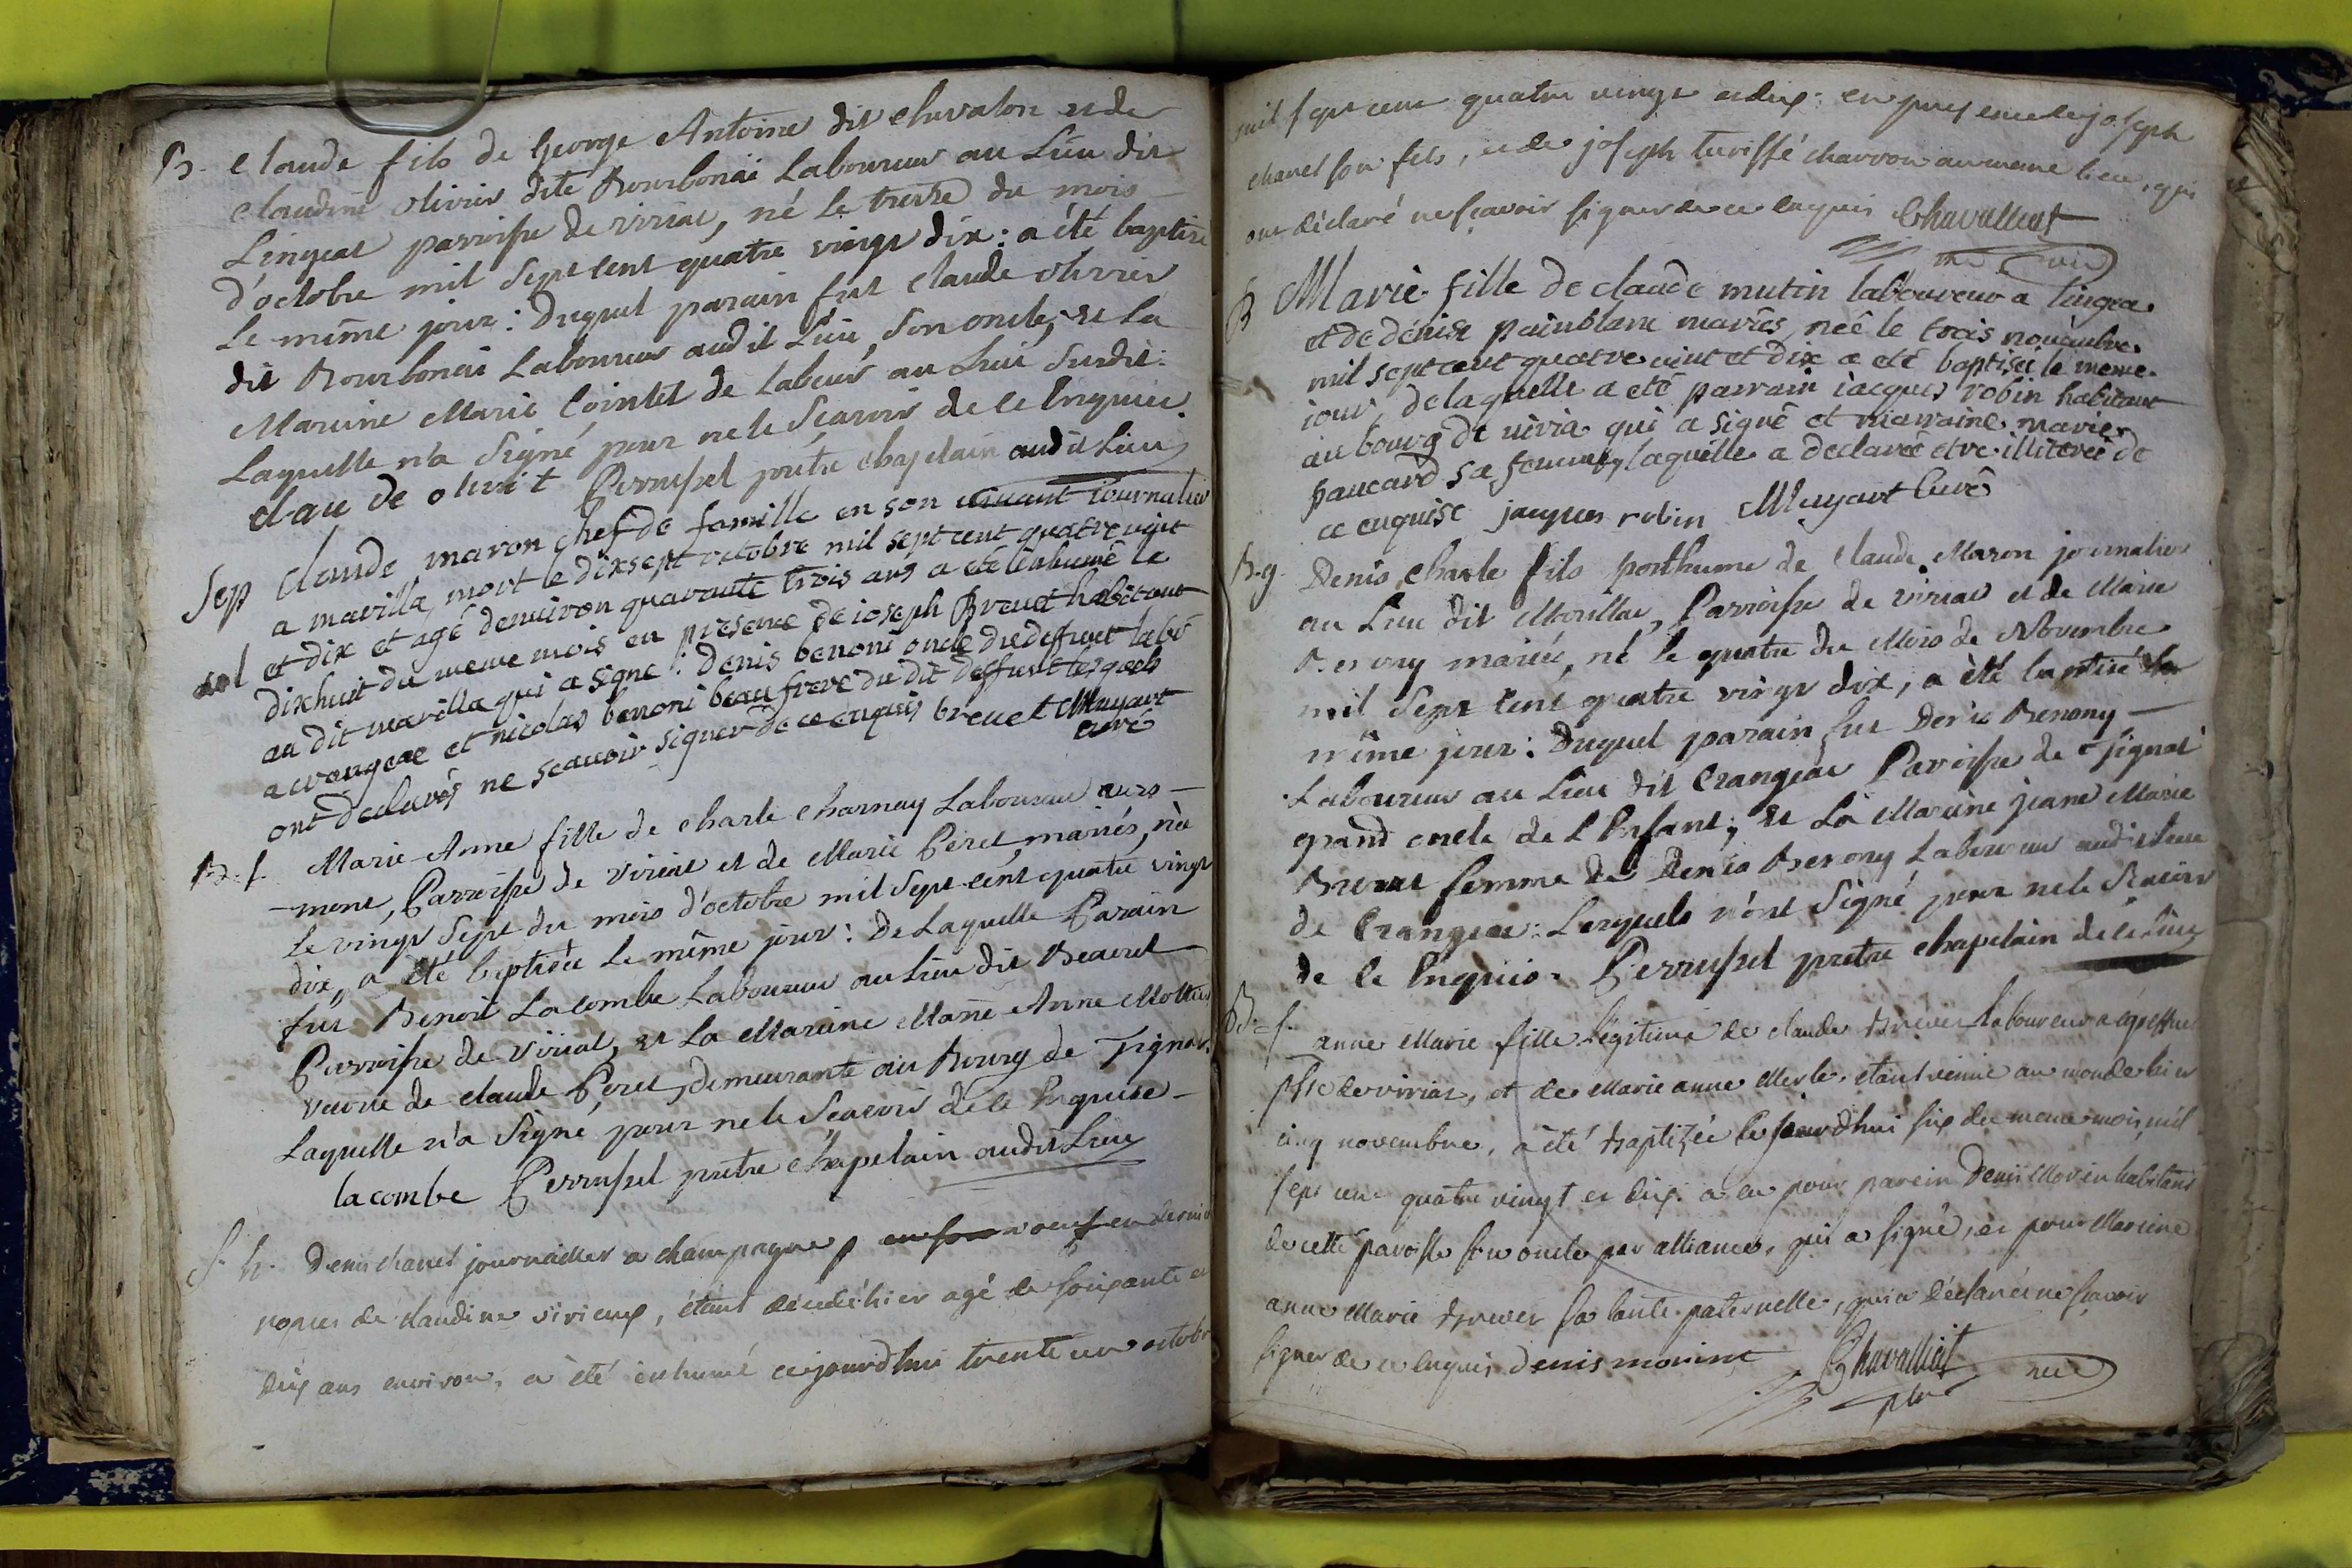 B. Claude fils de George Antoine dit chevalon et de
claudine olivier dite Bourbonai Laboureur au Lieu dit
Lingeat parroisse de viriat, né le treize du mois
d'octobre mil sept cent quatre vingt dix : a été baptisé
le même jour : Duquel parain fut claude olivier
dit Bourbonai Laboureur audit Lieu, son oncle, et La
Mareine Marie Cointet de labeur au Lieu Susdit :
Laquelle n'a Signé pour ne le Scavoir de ce Enquise
claude olivit Perrussel prêtre chapelain audit Lieu
Sep Claude maron chef de famille en son vivant journalier
a marilla, mort le dixsept octobre mil sept cent quatre vint
et dix et agé denviron quarante trois ans a eté inhumé le
dixhuit du meme mois en presence de joseph Brevet habitant
au dit marilla qui a signé : denis benoni oncle du deffunt labr
a crangeac et nicolas benoni beau frere du dit deffunt lesquels
ont declarés ne scavoir signer de ce enquis brevet Muyart
curé
B. f. Marie Anne fille de charle charnay Laboureur aux
mont, Parroisse de viriat et de Marie Peret mariés, née
le vingt Sept du mois d'octobre mil Sept cent quatre vingt
dix, a été baptisée le même jour : de Laquelle Parain
fut Benoit Lacombe Laboureur au Lieu dit
Parroisse de viriat, et La Mareine Marie Anne
veuve de claude Peret, demeurante au Bourg de
Laquelle n'a Signé pour ne le Scavoir de ce Enquise
lacombe Perrussel prêtre chapelain audit Lieu
S. h. Denis chanel journallier a champagne, veuf en dernier
nopces de claudine sirieux, étant décédé hier agé de soixante et
dix ans environ, a été inhumé cejourdhui trente un octobre
mil sept cent quatre vingt et dix : en presence de joseph
chanel son fils, et de joseph turiffé charron au meme lieu, qui
ont déclaré ne sçavoir signer de ce enquis Chavalliat
B Marie fille de claude mutin laboureur a lingea
et de denise painblanc mariés, neé le trois novambre
mil sept cent quatre vint et dix a eté baptisée le meme
jour, de laquelle a eté parrain jacques robin habitant
au bourg de viria qui a signé et marraine marie
paucard sa femme, laquelle a declaré etre illiterée de
ce enquise jacques robin Muyart Curé
B. g. Denis charle fils posthume de claude Maron journalier
au Lieu dit Marillac, Parroisse de viriat et de Marie
Benony mariée, né le quatre du Mois de Novembre
mil Sept cent quatre vingt dix, a été baptisé le
même jour : Duquel parain fut Denis Benony
Laboureur au Lieu dit Crangeac Parroisse de
grand oncle de L'Enfant; et La Mareine jeane Marie
Brevet femme de Denis Benony Laboureur audit lieu
de Crangeac : Lesquels n'ont Signé pour ne le Scavoir
de ce Enquis. Perrussel prêtre chapelain de ce Lieu
B. f. anne Marie fille légitime de claude brever laboureur a
psse de viriat, et de Marie anne Merle, etant venue au monde hier
cinq novembre, a été baptizée ce jourdhui six du meme mois, mil
sept cent quatre vingt et dix. a eu pour parein Denis Morin habitant
de cette paroisse son oncle par alliance, qui a signé, et pour Mareine
anne Marie brever sa tante paternelle, qui a déclaré ne sçavoir
signer de ce enquis denis morin Chavalliat